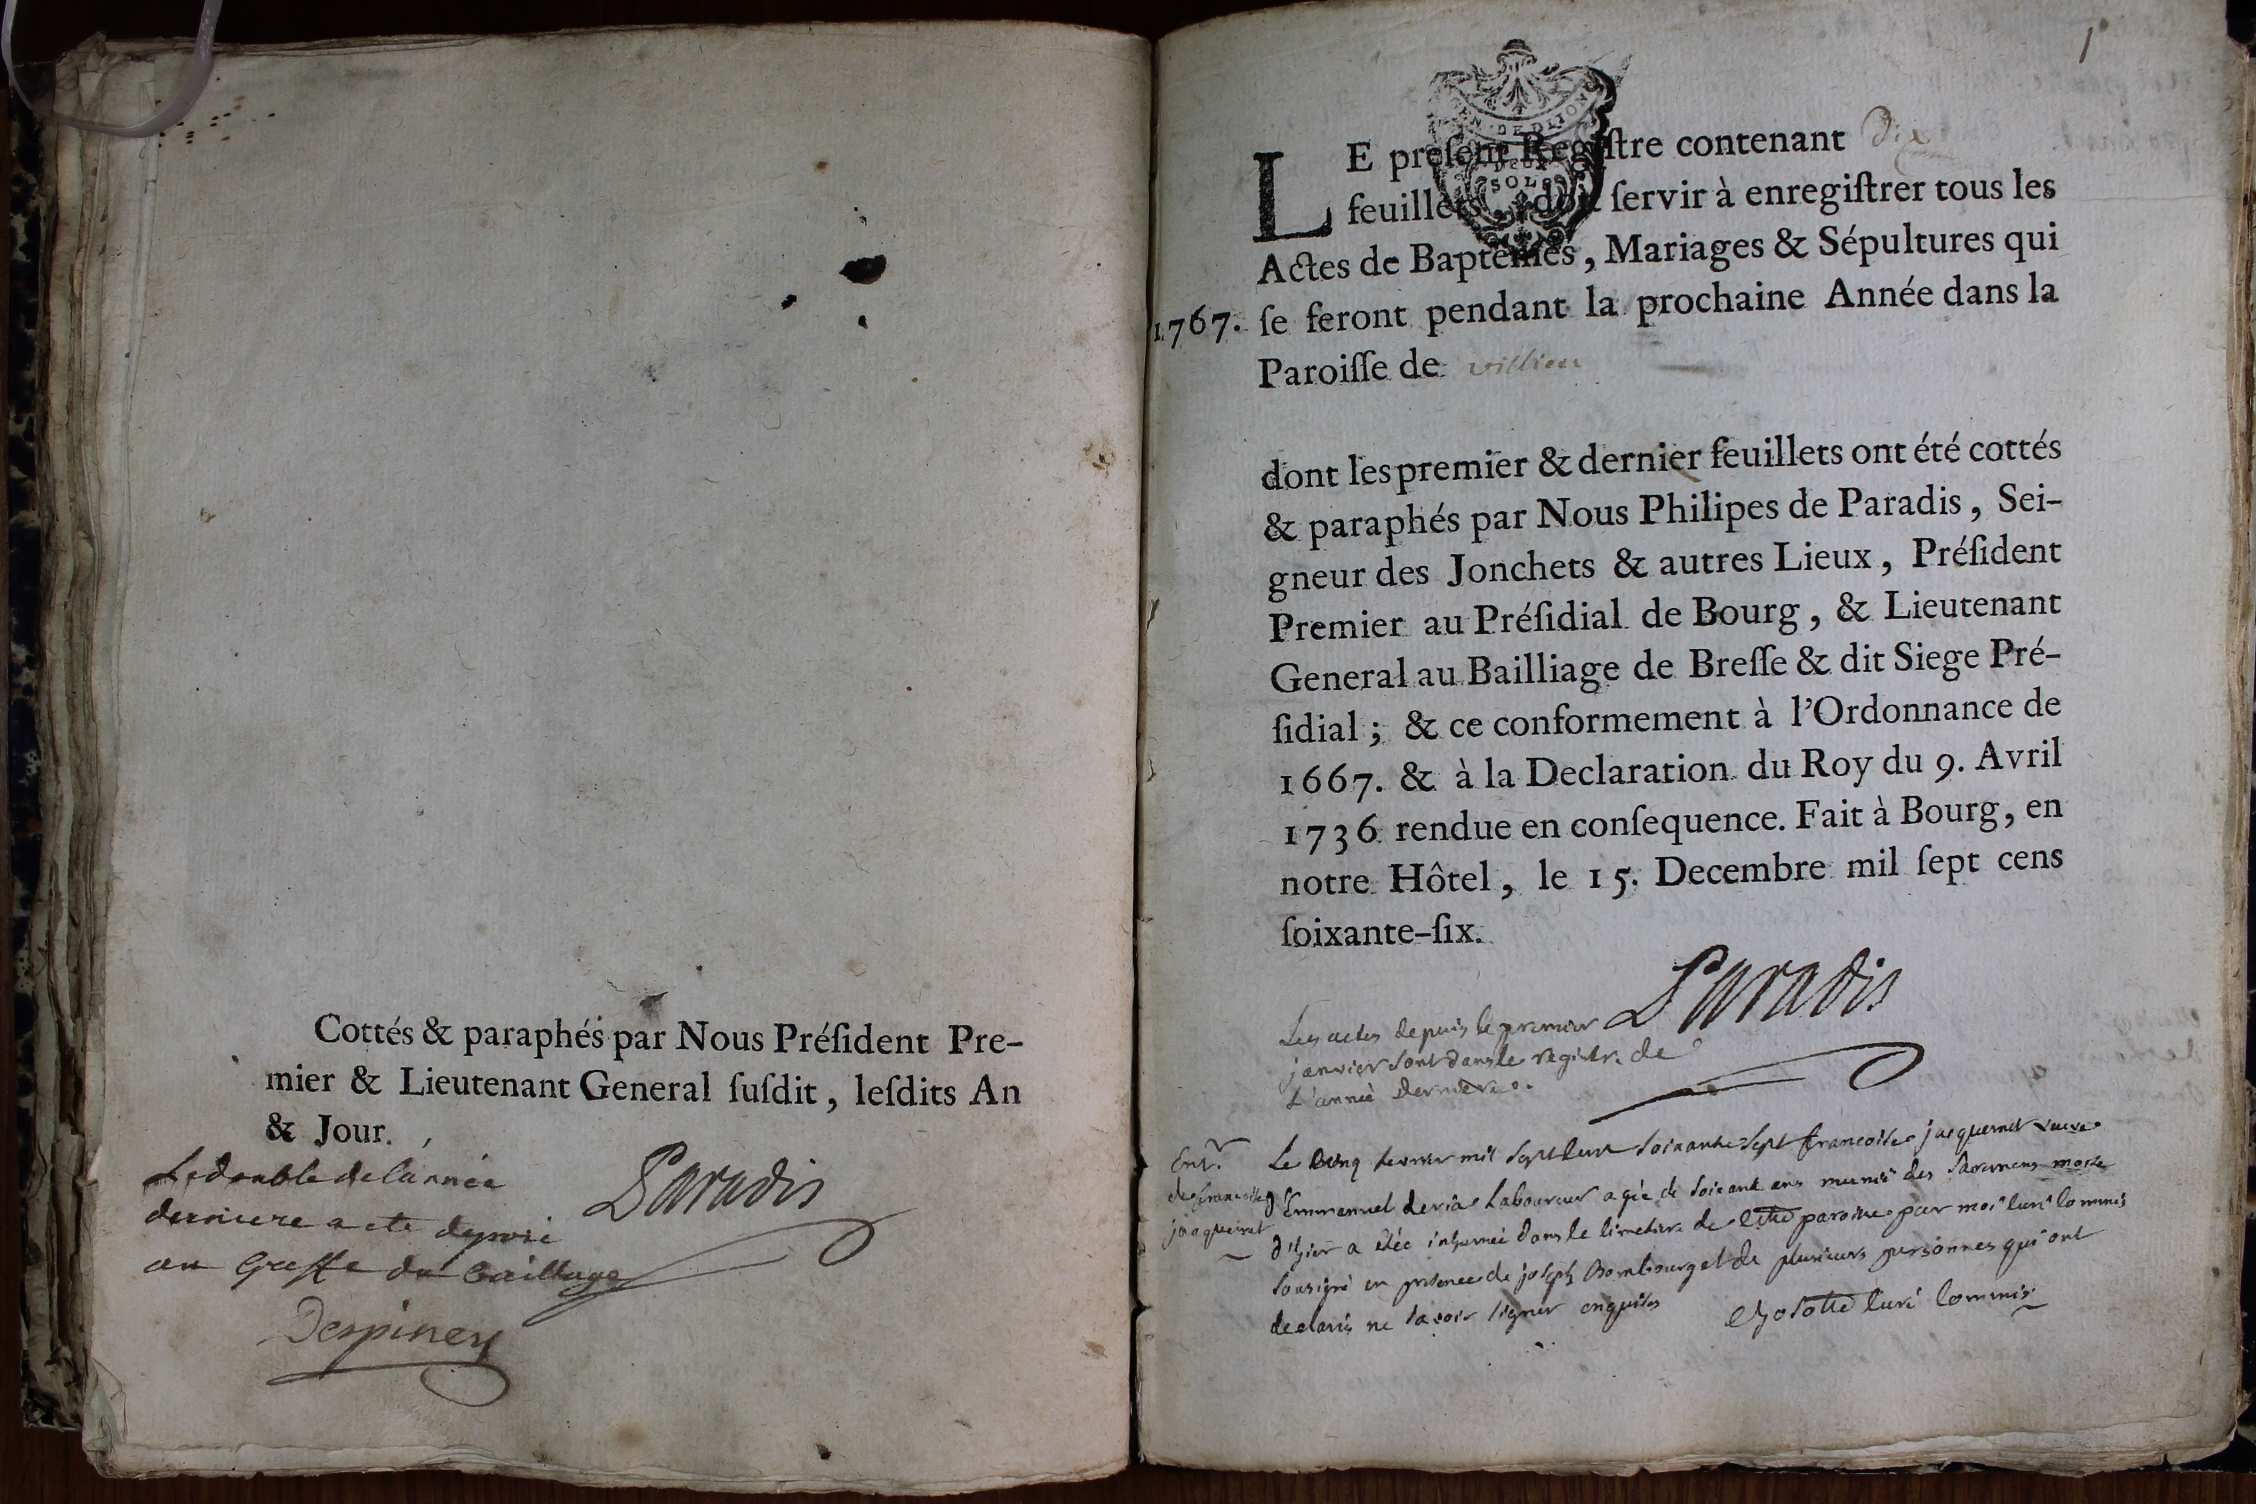 Cottés & paraphés par Nous Préſident Pre-
mier & Lieutenant General ſuſdit, leſdits An
& Jour.
Le double de l'année
derniere a ete deposé
au Greffe du Bailliage
Paradis
Despiney
1
GEN. DE DIJON
DEUX
SOLS
LE preſent Regiſtre contenant Dix
feuillets, doit ſervir à enregiſtrer tous les
Actes de Baptêmes, Mariages & Sépultures qui
1767. ſe feront pendant la prochaine Année dans la
Paroiſſe de villieu
dont les premier & dernier feuillets ont été cottés
& paraphés par Nous Philipes de Paradis, Sei-
gneur des Jonchets & autres Lieux, Préſident
Premier au Préſidial de Bourg, & Lieutenant
General au Bailliage de Breſſe & dit Siege Pré-
ſidial; & ce conformement à l'Ordonnance de
1667. & à la Declaration du Roy du 9. Avril
1736 rendue en conſequence. Fait à Bourg, en
notre Hôtel, le 15. Decembre mil ſept cens
ſoixante-ſix.
Paradis
Les actes depuis le premier
janvier sont dans le registr. de
L'anneé derniere.
Entr.
de francoise
jacquemet
Le cinq fevrier mil sept cent soixante sept francoise jacquemet veuve
d'Emmanuel deria Laboureur agée de soixante ans munie des sacremens morte
d'hier a étée inhumeé dans le cimetiere de cette paroisse par moi curé commis
sousigné en presence de joseph Bombourg et de plusieurs personnes qui ont
declaré ne savoir signer enquises
curé commis